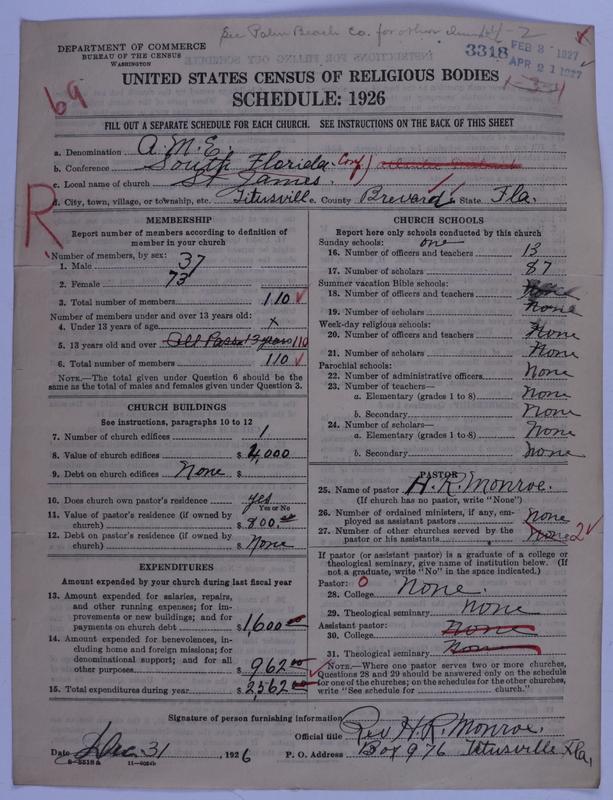 See Palm Beach Co. for other
DEPARTMENT OF COMMERCE
BUREAU OF THE CENSUS
WASHINGTON
3318 FEB 3 1927
APR 21 1927
UNITED STATES CENSUS OF RELIGIOUS BODIES
SCHEDULE: 1926
69
FILL OUT A SEPARATE SCHEDULE FOR EACH CHURCH. SEE INSTRUCTIONS ON THE BACK OF THIS SHEET
a. Denomination A.M.E.
b. Conference South Florida Conf
c. Local name of church St. James.
d. City, town, village, or township, etc. Titusville e. County Brevard State Fla.
R
MEMBERSHIP
Report number of members according to definition of
member in your church
Number of members, by sex:
1. Male 37
2. Female 73
3. Total number of members 110
Number of members under and over 13 years old:
4. Under 13 years of age x
5. 13 years old and over All Past 13 years 110
6. Total number of members 110
NOTE.—The total given under Question 6 should be the
same as the total of males and females given under Question 3.
CHURCH BUILDINGS
See instructions, paragraphs 10 to 12
7. Number of church edifices 1
8. Value of church edifices $ 4,000
9. Debt on church edifices None $
10. Does church own pastor's residence yes
Yes or No
11. Value of pastor's residence (if owned by
church) $ 800.00
12. Debt on pastor's residence (if owned by
church) $ None
EXPENDITURES
Amount expended by your church during last fiscal year
13. Amount expended for salaries, repairs,
and other running expenses; for im-
provements or new buildings; and for
payments on church debt $1,600 00
14. Amount expended for benevolences, in-
cluding home and foreign missions; for
denominational support; and for all
other purposes 962 00
15. Total expenditures during year $2,562 00
CHURCH SCHOOLS
Report here only schools conducted by this church
Sunday schools: one
16. Number of officers and teachers 13
17. Number of scholars 87
Summer vacation Bible schools:
18. Number of officers and teachers None
19. Number of scholars None
Week-day religious schools:
20. Number of officers and teachers None
21. Number of scholars None
Parochial schools:
22. Number of administrative officers None
23. Number of teachers—
a. Elementary (grades 1 to 8) None
b. Secondary None
24. Number of scholars—
a. Elementary (grades 1 to 8) None
b. Secondary None
PASTOR
25. Name of pastor H. R. Monroe.
(If church has no pastor, write "None")
26. Number of ordained ministers, if any, em-
ployed as assistant pastors None
27. Number of other churches served by the
pastor or his assistants None 2
If pastor (or assistant pastor) is a graduate of a college or
theological seminary, give name of institution below. (If
not a graduate, write "No" in the space indicated.)
Pastor: 0
28. College None.
29. Theological seminary None
Assistant pastor:
30. College None
31. Theological seminary None
NOTE.—Where one pastor serves two or more churches,
Questions 28 and 29 should be answered only on the schedule
for one of the churches; on the schedules for the other churches,
write "See schedule for church."
Signature of person furnishing information
Official title Rev. H. R. Monroe.
Date Dec. 31, 1926 P. O. Address Box 976 Titusville, Fla.
8-5518a 11-9024b